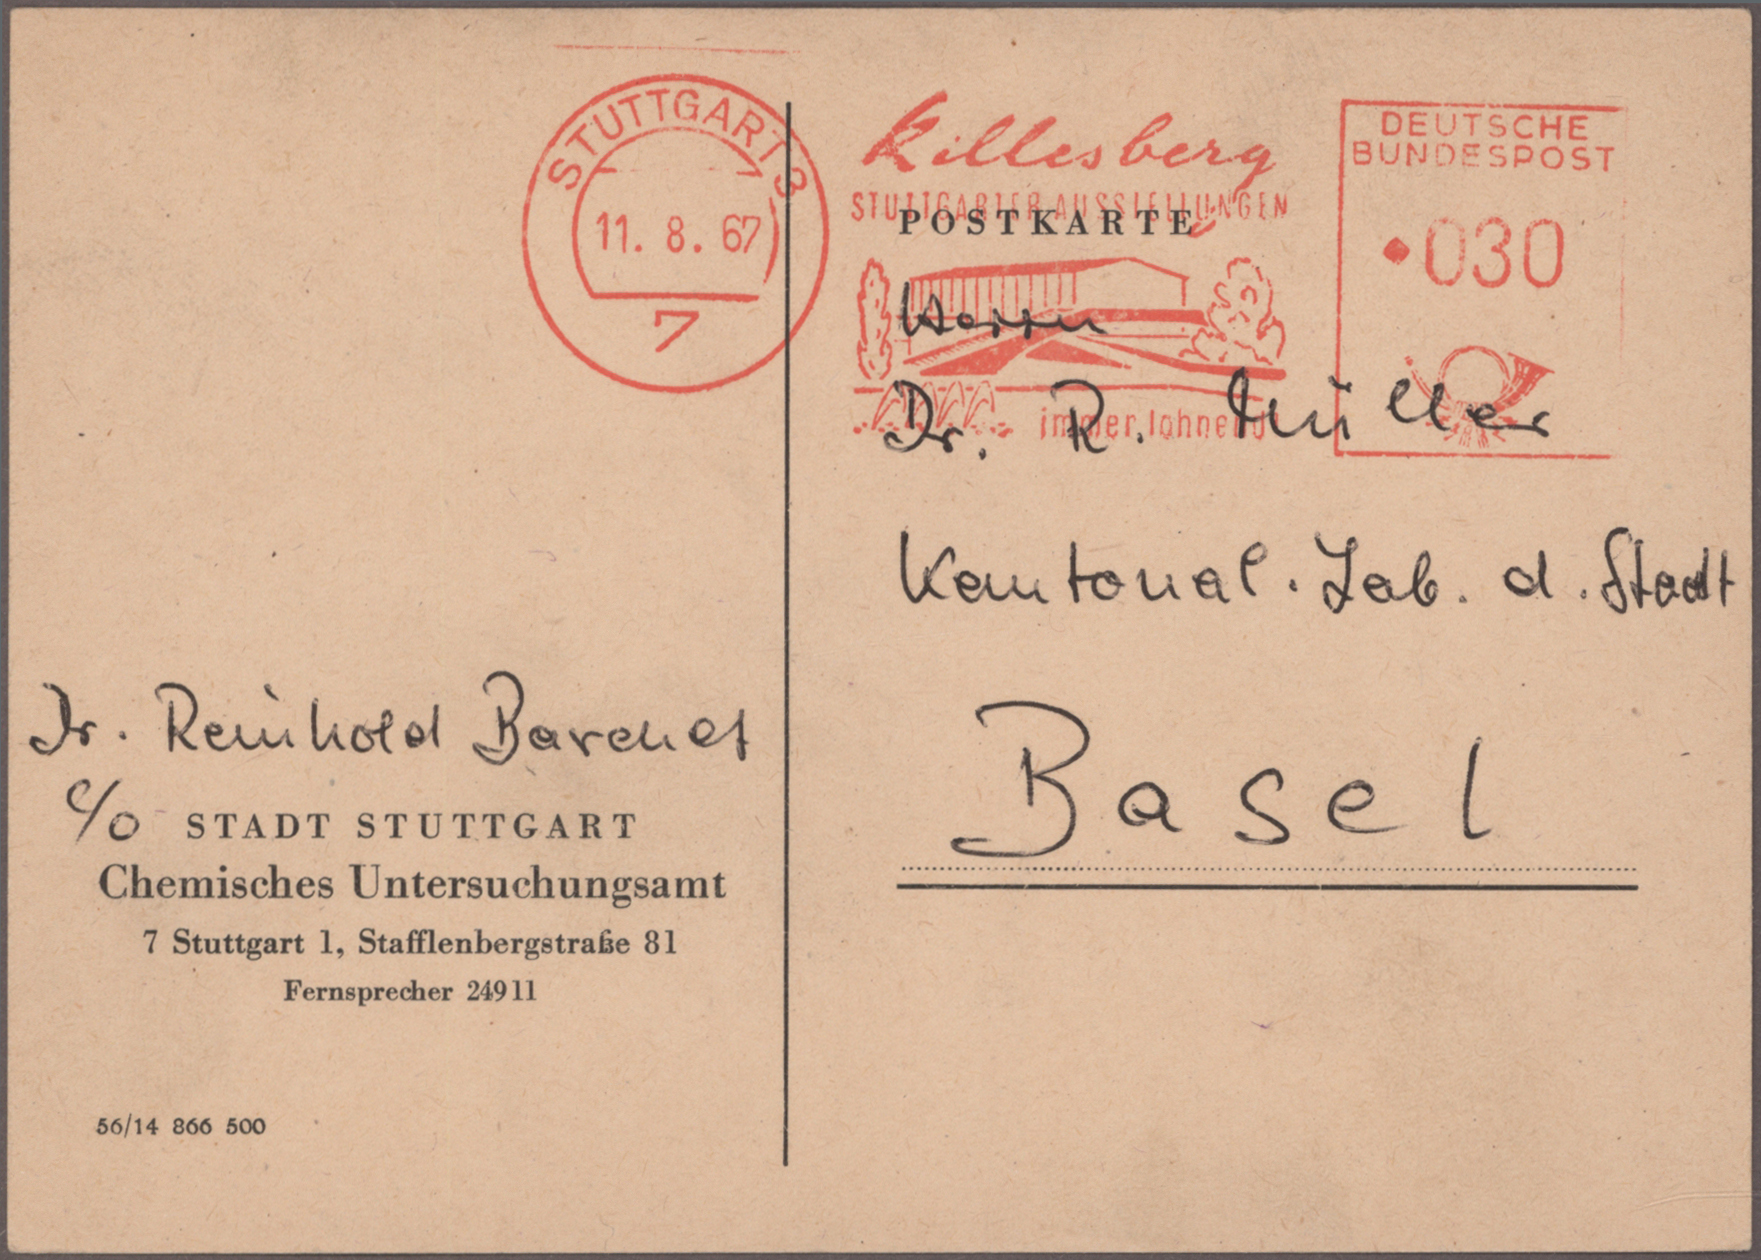 STUTTGART 3
11. 8. 67
7
Killesberg
STUTTGARTER AUSSTELLUNGEN
immer lohnend
DEUTSCHE
BUNDESPOST
030
POSTKARTE
Herrn
Dr. R. Müller
Kantonal. Lab. d. Stadt
Basel
Dr. Reinhold Barchet
c/o STADT STUTTGART
Chemisches Untersuchungsamt
7 Stuttgart 1, Stafflenbergstraße 81
Fernsprecher 24911
56/14 866 500